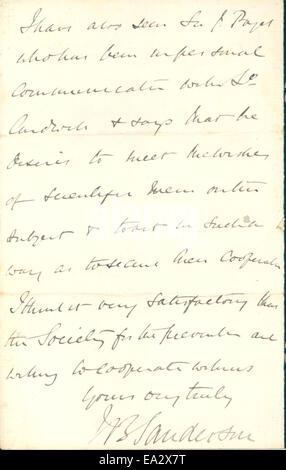 I have also seen Sir J. Paget
who has been in personal
communication with Ld
Cardwell & says that he
desires to meet the wishes
of scientific men on this
subject & to act in such a
way as to secure their cooperation
I think it very satisfactory that
the Society for the prevention are
willing to cooperate with us
Yours very truly
J B Sanderson
alamy
EA2X7T